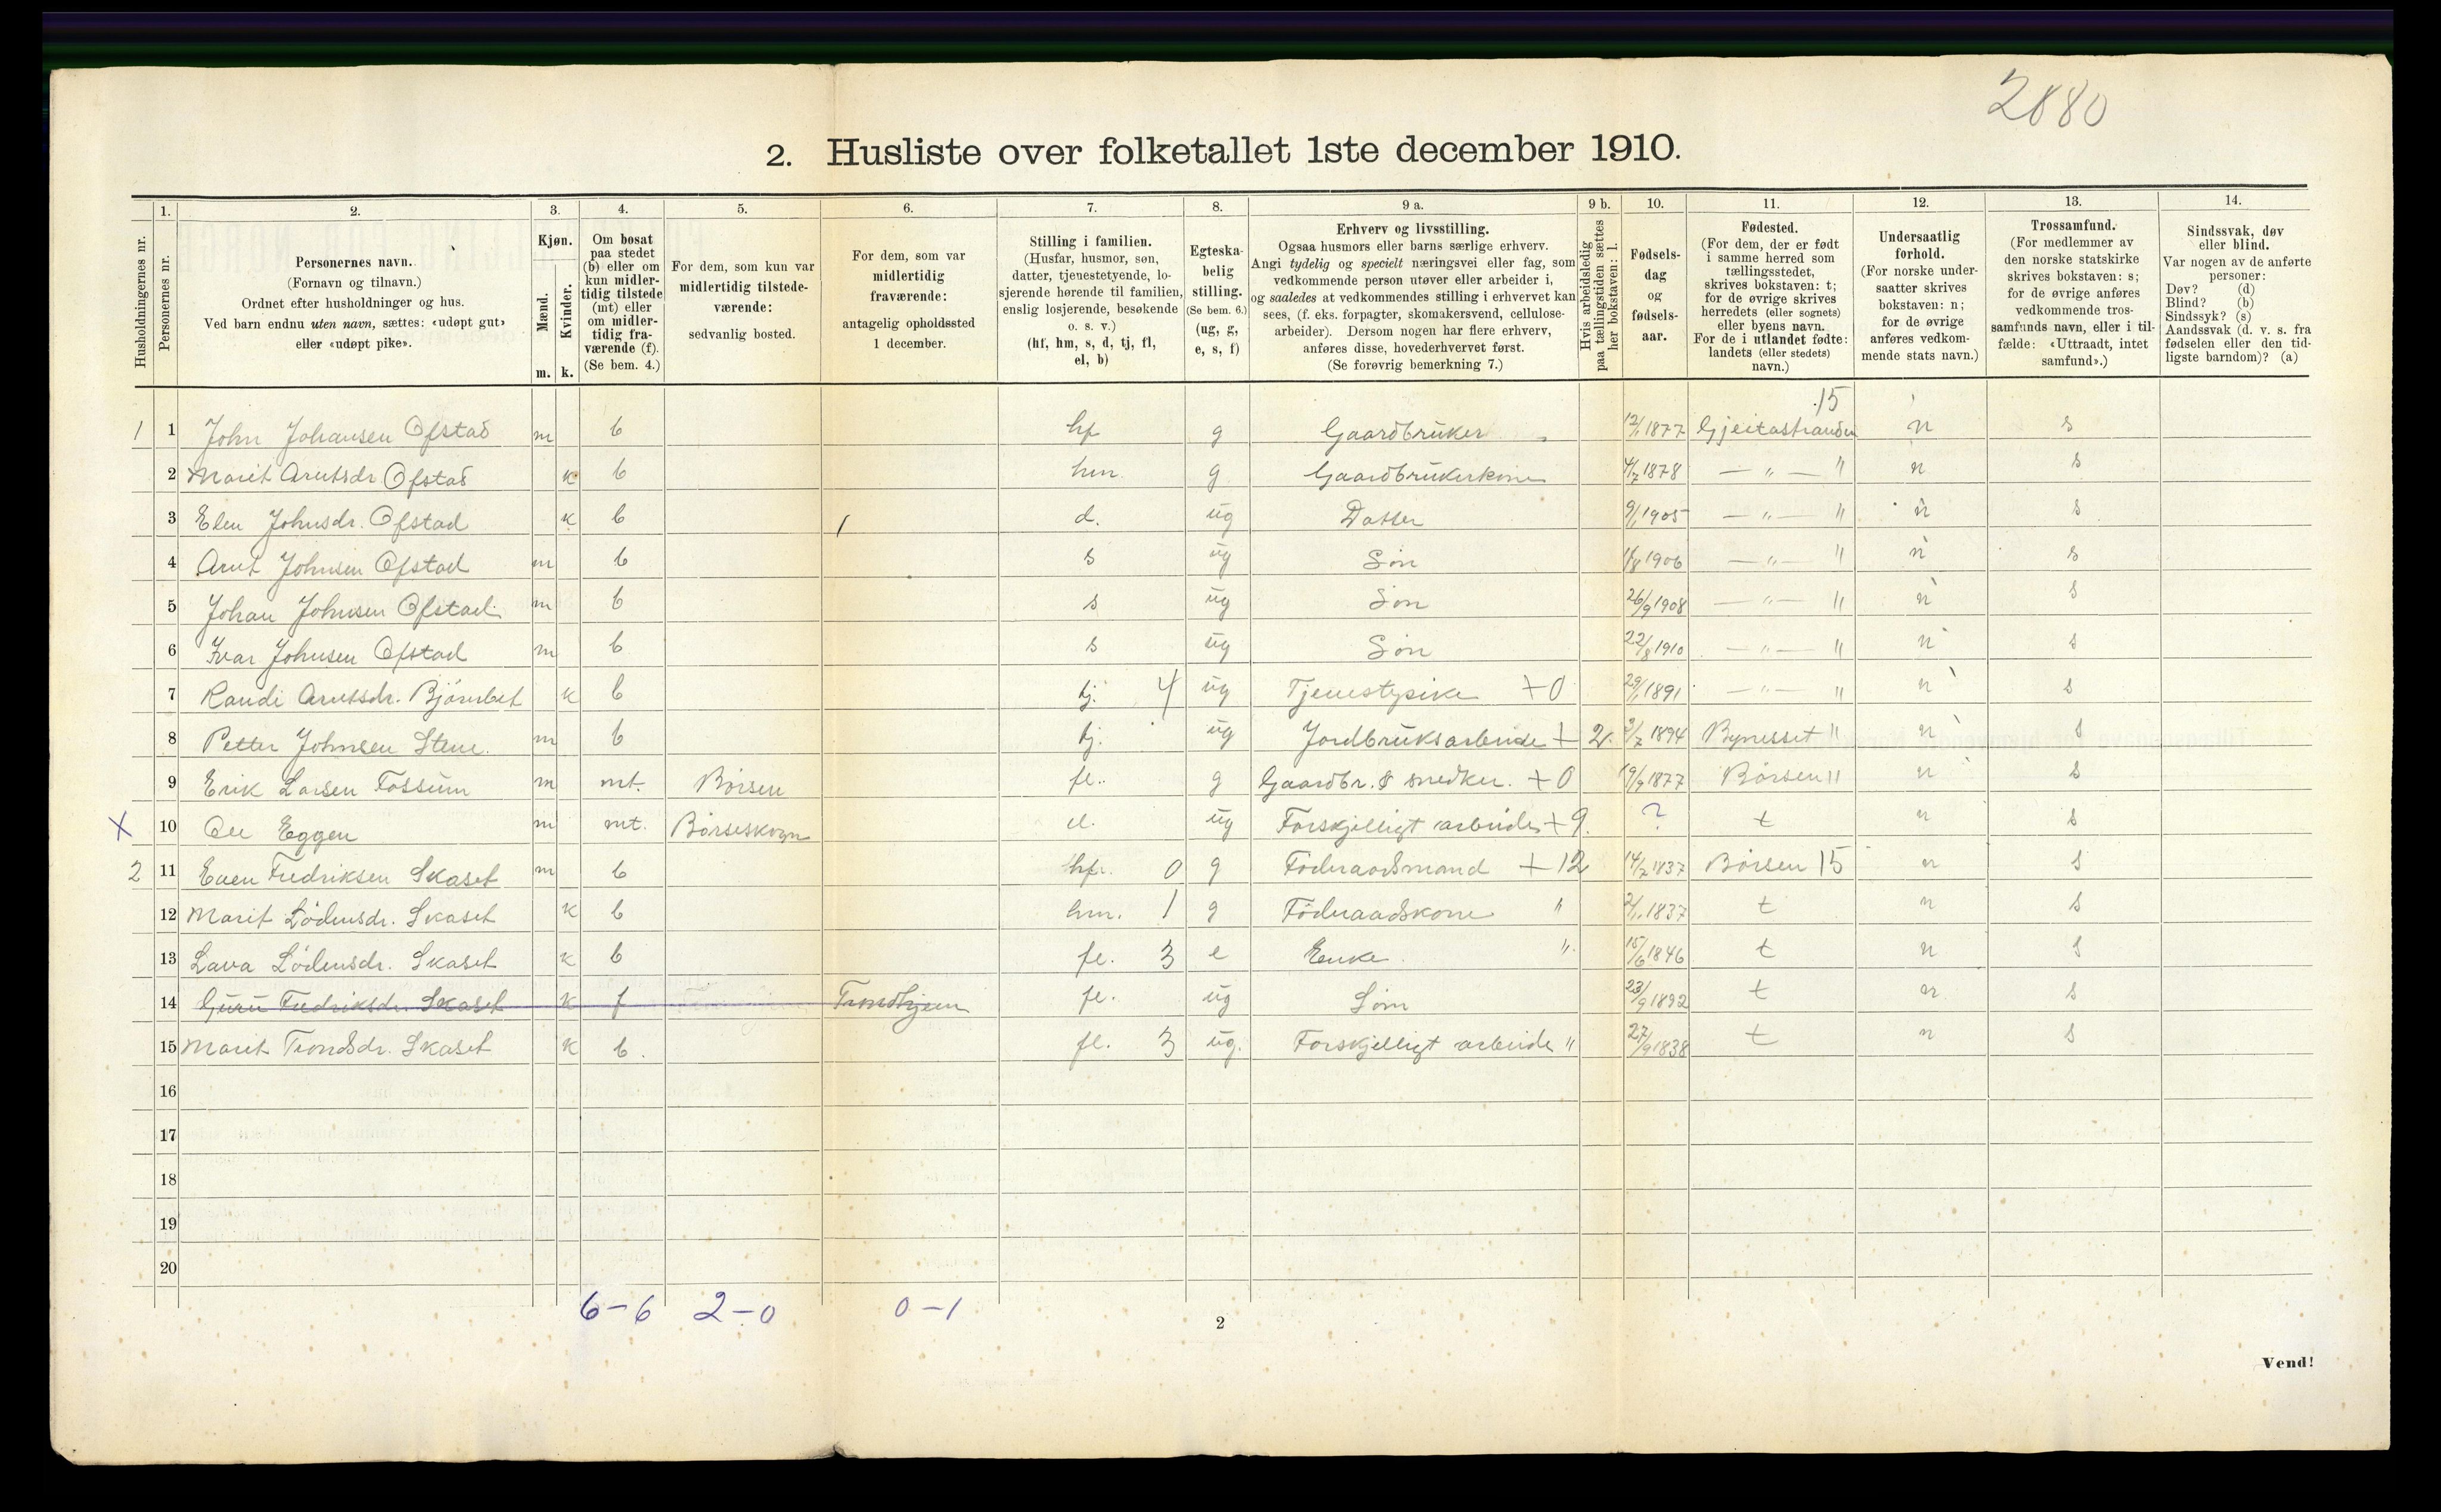 2880
2. Husliste over folketallet 1ste december 1910.
Husholdningernes nr.
1. Personernes nr.
2. Personernes navn.
(Fornavn og tilnavn.)
Ordnet efter husholdninger og hus.
Ved barn endnu uten navn, sættes: «udøpt gut»
eller «udøpt pike».
3. Kjøn.
Mænd. m.
Kvinder. k.
4. Om bosat
paa stedet
(b) eller om
kun midler-
tidig tilstede
(mt) eller
om midler-
tidig fra-
værende (f).
(Se bem. 4.)
5. For dem, som kun var
midlertidig tilstede-
værende:
sedvanlig bosted.
6. For dem, som var
midlertidig
fraværende:
antagelig opholdssted
1 december.
7. Stilling i familien.
(Husfar, husmor, søn,
datter, tjenestetyende, lo-
sjerende hørende til familien,
enslig losjerende, besøkende
o. s. v.)
(hf, hm, s, d, tj, fl,
el, b)
8. Egteska-
belig
stilling.
(Se bem. 6.)
(ug, g,
e, s, f)
9 a. Erhverv og livsstilling.
Ogsaa husmors eller barns særlige erhverv.
Angi tydelig og specielt næringsvei eller fag, som
vedkommende person utøver eller arbeider i,
og saaledes at vedkommendes stilling i erhvervet kan
sees, (f. eks. forpagter, skomakersvend, cellulose-
arbeider). Dersom nogen har flere erhverv,
anføres disse, hovederhvervet først.
(Se forøvrig bemerkning 7.)
9 b. Hvis arbeidsledig
paa tællingstiden sættes
her bokstaven: l.
10. Fødsels-
dag
og
fødsels-
aar.
11. Fødested.
(For dem, der er født
i samme herred som
tællingsstedet,
skrives bokstaven: t;
for de øvrige skrives
herredets (eller sognets)
eller byens navn.
For de i utlandet fødte:
landets (eller stedets)
navn.)
12. Undersaatlig
forhold.
(For norske under-
saatter skrives
bokstaven: n;
for de øvrige
anføres vedkom-
mende stats navn.)
13. Trossamfund.
(For medlemmer av
den norske statskirke
skrives bokstaven: s;
for de øvrige anføres
vedkommende tros-
samfunds navn, eller i til-
fælde: «Uttraadt, intet
samfund».)
14. Sindssvak, døv
eller blind.
Var nogen av de anførte
personer:
Døv? (d)
Blind? (b)
Sindssyk? (s)
Aandssvak (d. v. s. fra
fødselen eller den tid-
ligste barndom)? (a)
15
1 1 John Johansen Ofstad m b hf g Gaardbruker 12/1 1877 Gjeitastranden n s
2 Marit Arntsdr Ofstad k b hm. g Gaardbrukerkone 4/7 1878 — " — " n s
3 Elen Johnsdr. Ofstad k b 1 d. ug Datter 9/1 1905 — " — " n s
4 Arnt Johnsen Ofstad m b s ug Søn 1906 — " — " n s
5 Johan Johnsen Ofstad m b s ug Søn 26/9 1908 — " — " n s
6 Ivar Johnsen Ofstad m b s ug Søn 22/8 1910 — " — " n s
7 Randi Arntsdr. k b tj. 4 ug Tjenestepike + 0 29/1 1891 — " — " n s
8 Petter Johnsen Stene. m b tj. ug Jordbruksarbeide + 2. 2/7 1894 Bynesset " n s
9 Erik Larsen Fossum m mt. Börsen fl. g Gaardbr. & snedker. + 0 19/9 1877 Börsen " n s
X 10 Ole Eggen m mt. Börseskogn el. ug Forskjelligt arbeide + 9. ? t n s
2 11 Even Fredriksen Skaset m b hf. 0 g Föderaadsmand + 12 14/7 1837 Börsen 15 n s
12 Marit Lödensdr. Skaset k b hm. 1 g Föderaadskone " 1837 t n s
13 Lava Lödensdr. Skaset k b fl. 3 e Enke ". 15/6 1846 t n s
14 Guru Fredriksdr. Skaset k f Trondhjem fl. ug 23/9 1892 t n s
15 Marit Trondsdr. Skaset k b. fl. 3 ug. Forskjelligt arbeide " 27/9 1838 t n s
16
17
18
19
20
6-6 2-0 0-1
2
Vend!